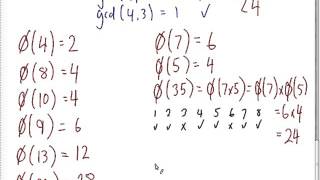 gcd(4,3) = 1 ✓
24
φ(4) = 2
φ(8) = 4
φ(10) = 4
φ(9) = 6
φ(13) = 12
φ(7) = 6
φ(5) = 4
φ(35) = φ(7x5) = φ(7)xφ(5)
= 6x4
= 24
1 2 3 4 5 6 7 8
✓ ✓ x ✓ ✓ x ✓ ✓